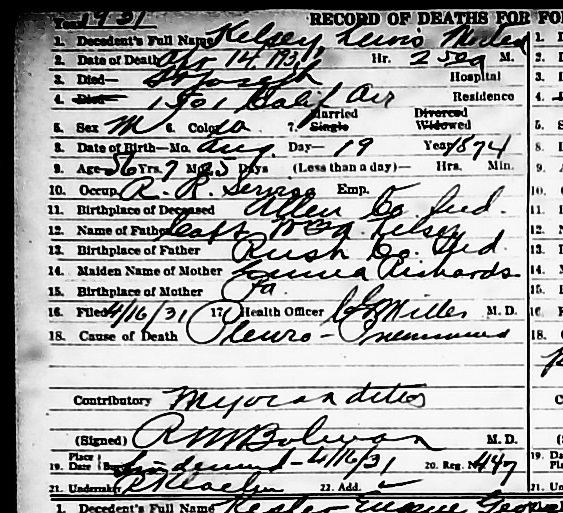 Year 1931 RECORD OF DEATHS FOR FO
1. Decedent's Full Name Kelsey Lewis
2. Date of Death Apr 14, 1931, Hr. 2 50 a M. 2.
3. Died— St Joseph Hospital 3.
4. Died— 1901 Calif Av Residence 4.
Married Divorced
5. Sex M 6. Color w 7. Single Widowed 5.
8. Date of Birth—Mo. Aug. Day— 19 Year 1874 8.
9. Age 56 Yrs. 7 Mo. 25 Days (Less than a day)— Hrs. Min. 9.
10. Occup. R. R. Service Emp. 10.
11. Birthplace of Deceased Allen Co. Ind. 11.
12. Name of Father Kelsey 12.
13. Birthplace of Father Rush Co. Ind. 13.
14. Maiden Name of Mother Emma Richards 14.
15. Birthplace of Mother Pa. 15.
16. Filed 4/16/31 17. Health Officer Miller M. D. 16.
18. Cause of Death Pleuro-Pneumonia 18.
Contributory Myocarditis
(Signed) M. D.
Place
19. Date Lindenwood-4/16/31 20. Reg. No. 447 19.
21. Undertaker Klaehn 22. Add. 21.
1. Decedent's Full Name Eugene George 1.